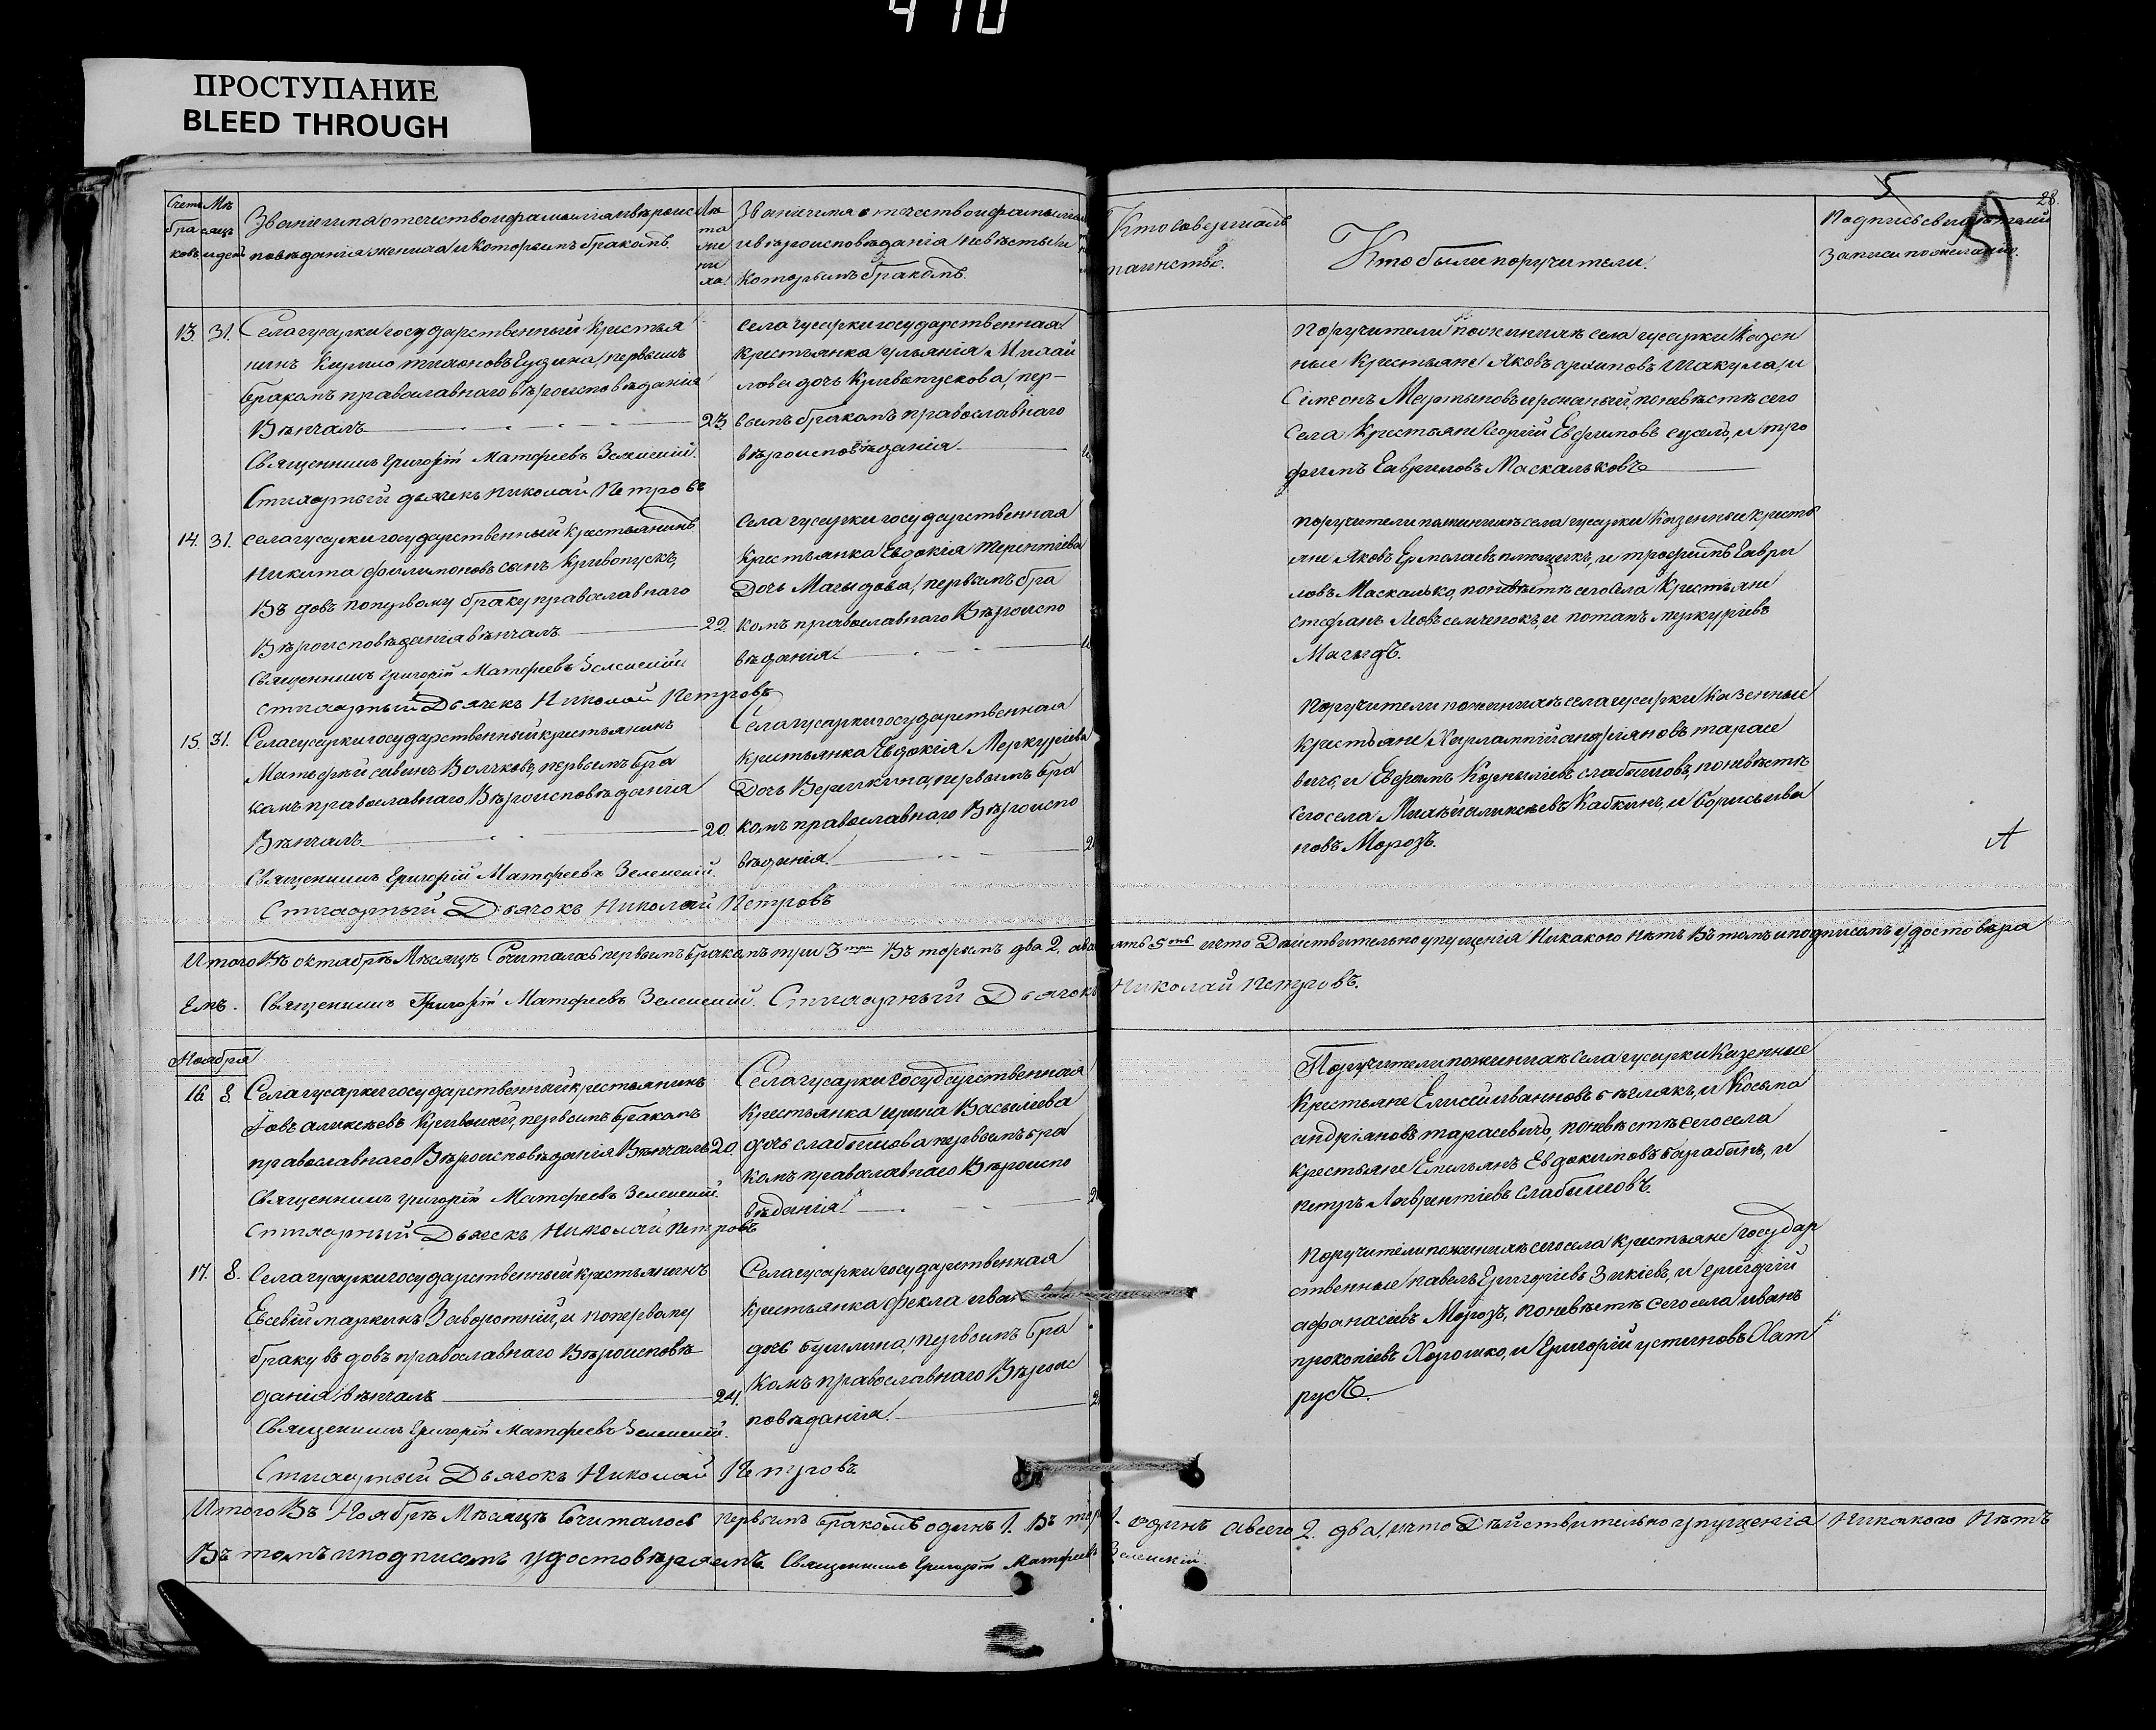 410
ПРОСТУПАНИЕ
BLEED THROUGH
28.
5
Счетъ бра ковъ
Мѣ сяцъ и день
Званіе имя отечество и фамилія и вѣроис
повѣданія жениха и которымъ бракомъ.
Лѣ та же ни ха.
Званіе имя отечество и фамилія
и вѣроисповѣданія невѣсты и
которымъ бракомъ.
Кто совершалъ
таинство.
Кто были поручители.
Подпись свидѣтелей
записи по желанію.
13. 31. Села гусарки государственный крестья
нинъ первымъ
бракомъ православнаго вѣроисповѣданія
Вѣнчалъ 23.
Священникъ Григорій Матфеевъ Зеленскій.
Стихарный дьячекъ Николай Петровъ
села гусарки государственная
крестьянка ульянія Михаи
лова дочь Кривопускова, пер-
вымъ бракомъ православнаго
вѣроисповѣданія
Поручители по женихѣ села гусарки Казен
ные Крестьяне Яковъ архиповъ Шакула, и
Сімеонъ Мартыновъ по невѣстѣ сего
Села Крестьяне Георгій и тро
фимъ Гавриловъ Маскальковъ
14. 31. села гусарки государственный крестьянинъ
Никита филимоновъ сынъ Кривопускъ,
Вдовъ по первому браку православнаго
Вѣроисповѣданія вѣнчалъ 22.
Священникъ Григорій Матфеевъ Зеленскій
стихарный Дьячекъ Николай Петровъ
Села гусарки государственная
Крестьянка Евдокія терентіева
Дочь Магыдова, первымъ бра
комъ православнаго Вѣроиспо
вѣданія
поручители по женихѣ села гусарки Казенные кресть
яне Яковъ Ермолаевъ и трофимъ Гаври
ловъ Маскалько, по невѣстѣ сего села Крестьяне
стефанъ семченокъ, и потапъ меркуріевъ
Магыдъ.
15. 31. Села гусарки государственный крестьянинъ
Матофей савинъ Волчковъ, первымъ бра
комъ православнаго Вѣроисповѣданія
Вѣнчалъ 20.
Священникъ Григорій Матфеевъ Зеленскій.
Стихарный Дьячокъ Николай Петровъ
Села гусарки государственная
крестьянка Евдокія Меркуріева
Дочь Веришкина, первымъ бра
комъ православнаго Вѣроиспо
вѣданія
Поручители по женихѣ села гусарки Казенные
крестьяне Харлампій андріяновъ тарасе
вичъ, и Ефимъ Корныліевъ слабышовъ, по невѣстѣ
сего села аликсѣевъ Кабкинъ, и борисъ ива
новъ Морозъ.
Итого Въ октябрѣ Мѣсяцѣ Считалось первымъ бракомъ три 3 три Въторымъ два 2. а пять 5 ть и что Дѣйствительно упущенія Никакого нѣтъ Въ томъ и подписомъ удостовѣра
Емъ. Священникъ Григорій Матфеевъ Зеленскій. Стихарный Дьячокъ Николай Петровъ.
Ноября
16. 8. Села гусарки государственный крестьянинъ
Іовъ аликсѣевъ первымъ бракомъ
православнаго Вѣроисповѣданія Вѣнчалъ 20.
Священникъ Григорій Матфеевъ Зеленскій.
Стихарный Дьячекъ Николай Петровъ
Села гусарки государственная
Крестьянка ирина Василіева
дочь слабышова первымъ бра
комъ православнаго Вѣроиспо
вѣданія
Поручители по женихѣ села гусарки Казенные
Крестьяне Елисѣй ивановъ бѣлякъ, и Косьма
андріановъ тарасевичъ, по невѣстѣ сего села
крестьяне Емильянъ Евдокимовъ барабанъ, и
петръ Лаврентіевъ Слабышовъ.
17. 8. Села гусарки государственный крестьянинъ
Евсевій маркинъ Заворотній, и по первому
браку вдовъ православнаго Вѣроисповѣ
данія вѣнчалъ 24.
Священникъ Григорій Матфеевъ Зеленскій.
Стихарный Дьячокъ Николай Петровъ
Села гусарки государственная
крестьянка фекла ива
дочь первымъ бра
комъ православнаго Вѣроис
повѣданія.
Поручители по женихѣ сего села крестьяне государ
ственные павелъ Григоріевъ Зикіевъ, и григорій
афанасіевъ Морозъ, по невѣстѣ сего села иванъ
прокопіевъ Хорошко, и Григорій устиновъ Хат
русъ.
Итого Въ Ноябрѣ Мѣсяцѣ Считалось первымъ бракомъ одинъ 1. Въ тор 1. одинъ а всего 2. два, и что Дѣйствительно упущенія Никакого Нѣтъ
Въ томъ и подписомъ удостовѣряемъ. Священникъ Григорій Матфеевъ Зеленскій.